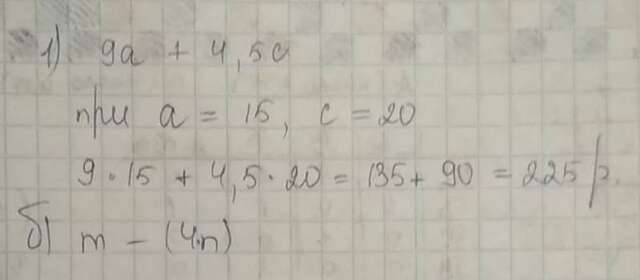 1) 9a + 4,5c
при a = 15, c = 20
9 · 15 + 4,5 · 20 = 135 + 90 = 225 р.
б) m - (4·n)